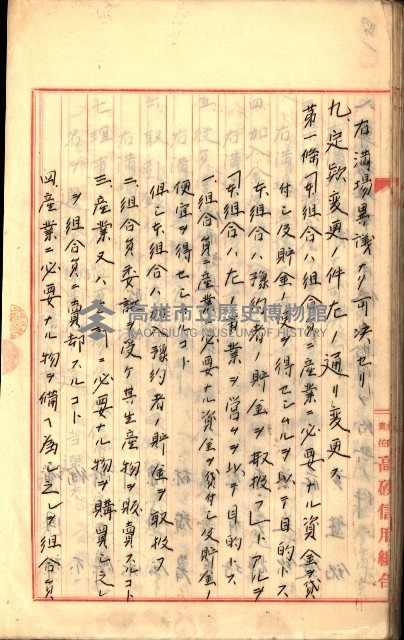 一、右満場異議ナク可決セリ
九、定款変更ノ件左ノ通リ変更ス
第一條「本組合ハ組合員ニ産業ニ必要ナル資金ヲ貸
付シ及貯金ノ便宜ヲ得セシムルヲ以テ目的トス
本組合ハ豫約者ノ貯金ヲ取扱フ」トアルヲ
「本組合ハ左ノ事業ヲ営ムヲ以テ目的トス
一、組合員ニ産業ニ必要ナル資金ヲ貸付シ及貯金ノ
便宜ヲ得セシムルコト
但シ本組合ハ豫約者ノ貯金ヲ取扱フ
二、組合員委託ヲ受ケ其生産物ヲ販賣スルコト
三、産業又ハ ニ必要ナル物ヲ購買シ之レ
ヲ組合員ニ賣却スルコト
四、産業ニ必要ナル物ヲ備ヘ為シ之レヲ組合員
責任
高砂信用組合
高雄市立歷史博物館
KAOHSIUNG MUSEUM OF HISTORY